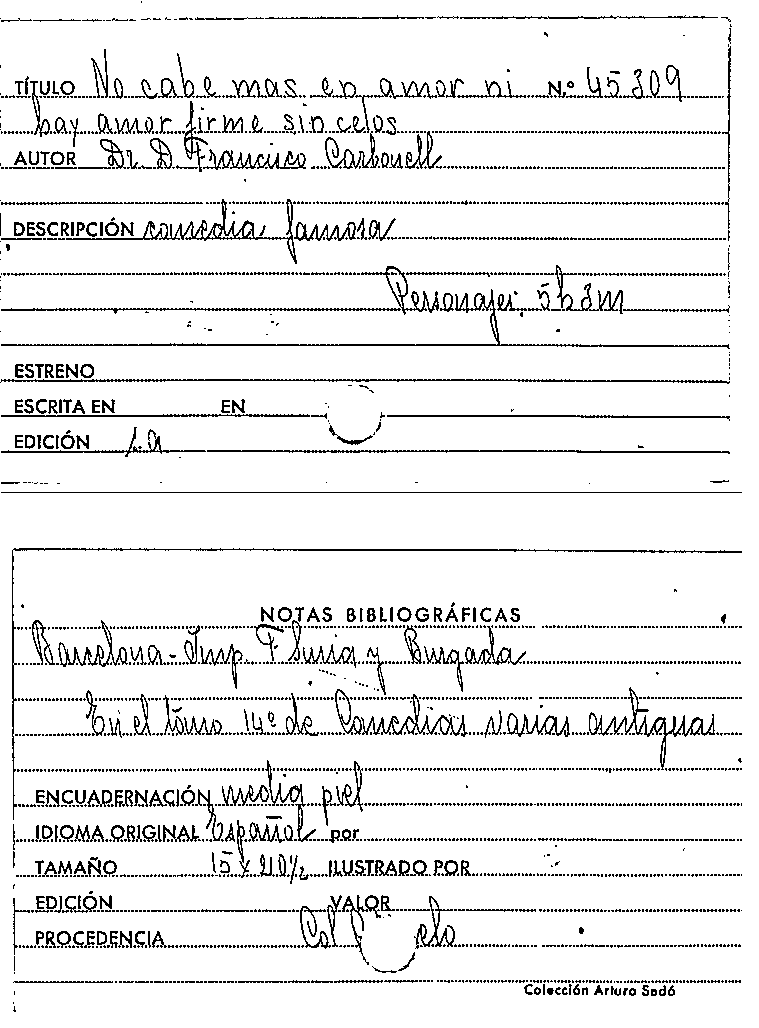 TÍTULO No cabe mas en amor ni N.º 45309
hay amor firme sin celos
AUTOR Dr. D. Francisco Carbonell
DESCRIPCIÓN comedia famosa
Personajes: 5h 3m
ESTRENO
ESCRITA EN EN
EDICIÓN 1.a
NOTAS BIBLIOGRÁFICAS
Barcelona - Imp. F. Suria y Burgada
En el tomo 14º de Comedias varias antiguas
ENCUADERNACIÓN media piel
IDIOMA ORIGINAL Español por
TAMAÑO 15 x ILUSTRADO POR
EDICIÓN VALOR
PROCEDENCIA Col
Colección Arturo Sedó